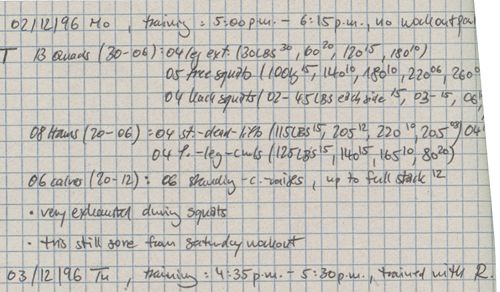 02/12/96 Mo, training = 5:00 p.m. – 6:15 p.m., no workout par
T 13 Quads (30-06) = 04 leg ext. (30LBS 30, 60 20, 120 15, 180 10)
05 free squats (100LBS 15, 140 10, 180 10, 220 06, 260
04 hack squats (02 – 45LBS each side 15, 03-15, 06,
08 Hams (20-06) = 04 st.-dead-lifts (115LBS 15, 205 12, 220 10, 205 04
04 -leg-curls (125LBS 15, 140 15, 165 10, 80 20)
06 calves (20-12) : 06 standing-c.-raises, up to full stack 12
· very exhausted during squats
· still sore from saturday workout
03/12/96 Tu, training = 4:35 p.m. – 5:30 p.m., trained with R.